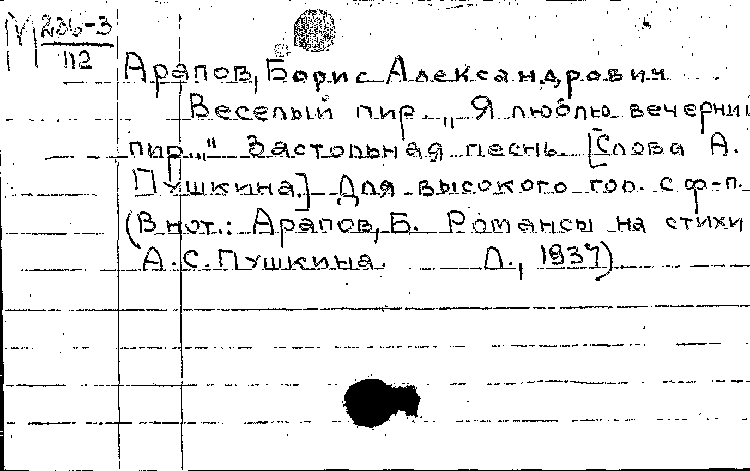 М 236-3
112
Арапов, Борис Александрович
Веселый пир. „Я люблю вечерний
пир..." Застольная песнь. [Слова А.
Пушкина.] Для высокого гол. с ф-п.
(В нот.: Арапов, Б. Романсы на стихи
А.С. Пушкина. Л., 1937)